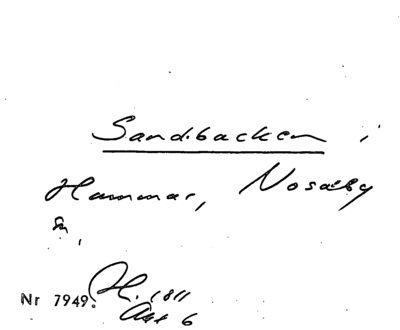 Sandbacken i
Hammar, Nosaby
sn,
Nr 7949. H. 1811
Akt 6